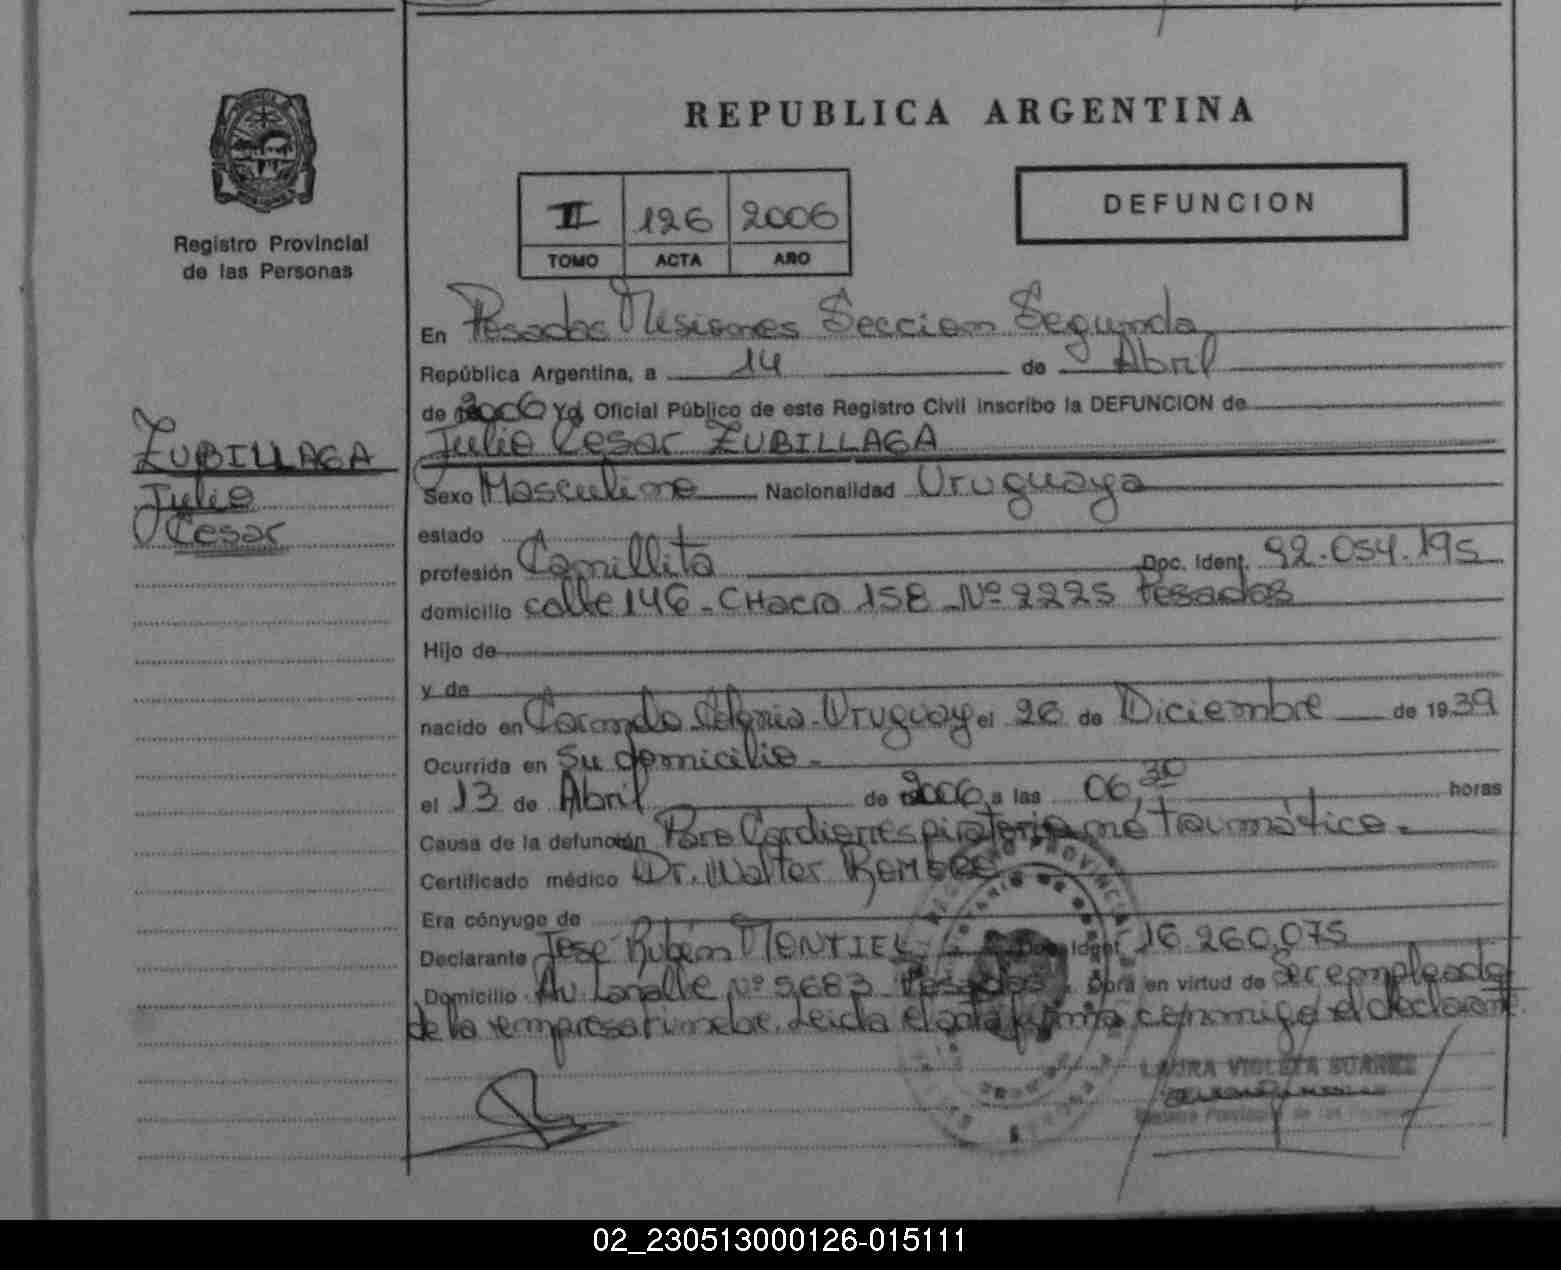 REPUBLICA ARGENTINA
DEFUNCION
II 126 2006
TOMO ACTA AÑO
Registro Provincial
de las Personas
ZUBILLAGA
Julio
Cesar
En Posadas Misiones Seccion Segunda
República Argentina, a 14 de Abril
de 2006 Yo, Oficial Público de este Registro Civil inscribo la DEFUNCION de
Julio Cesar ZUBILLAGA
Sexo Masculino Nacionalidad Uruguaya
estado
profesión Canillita Doc. Ident. 92.054.195
domicilio calle 146 - CHacra 158 - Nº 2225 Posadas
Hijo de
y de
nacido en Colonia - Uruguay el 26 de Diciembre de 1939
Ocurrida en su domicilio -
el 13 de Abril de 2006 a las 06,30 horas
Causa de la defunción Paro Cardiorrespiratorio no traumático -
Certificado médico Dr. Walter
Era cónyuge de
Declarante José Rubén MONTIEL Doc. Ident. 16.260.075
Domicilio Av. Lavalle Nº 5683 Posadas. Obra en virtud de ser empleado
de la empresa Leida el acta firma conmigo el declarante.
LAURA VIOLETA SUAREZ
Registro Provincial de las Personas
02_230513000126-015111